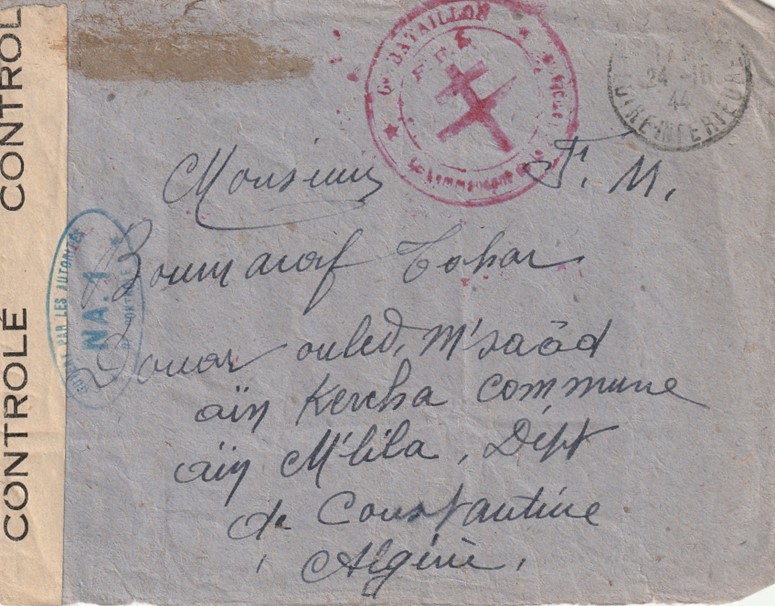 CONTROLÉ CONTROL
6e BATAILLON
Le Commandant
24 -10
44
LOIRE-INFERIEURE
OUVERT PAR LES AUTORITÉS
NA. 1
DE CONTROLE
Monsieur F. M.
Boumaraf Tahar
Douar ouled, M'saâd
aïn Kercha commune
aïn M'lila, Dépt
de Constantine
Algérie.